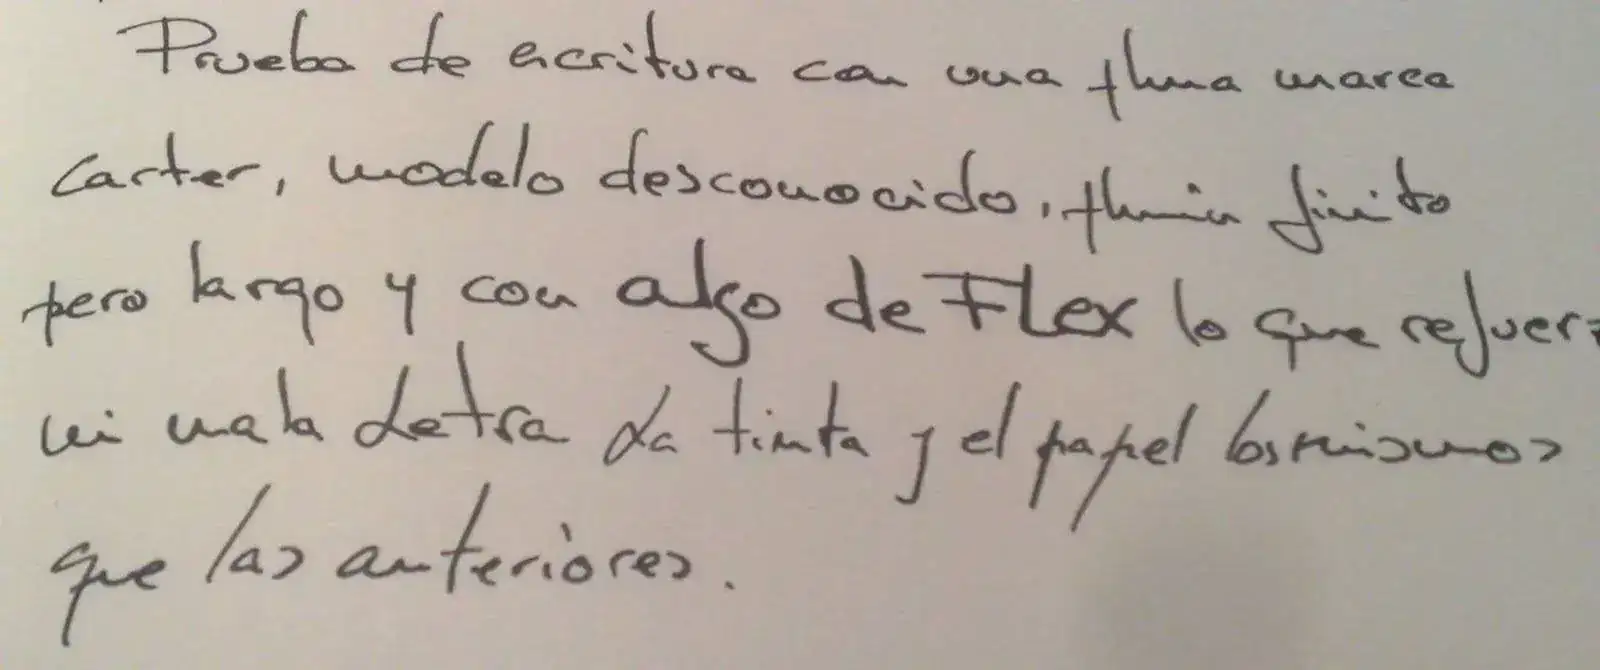 Prueba de escritura con una pluma marca
Carter, modelo desconocido, plumín finito
pero largo y con algo de Flex lo que refuerz
mi mala letra La tinta y el papel los mismos
que las anteriores.